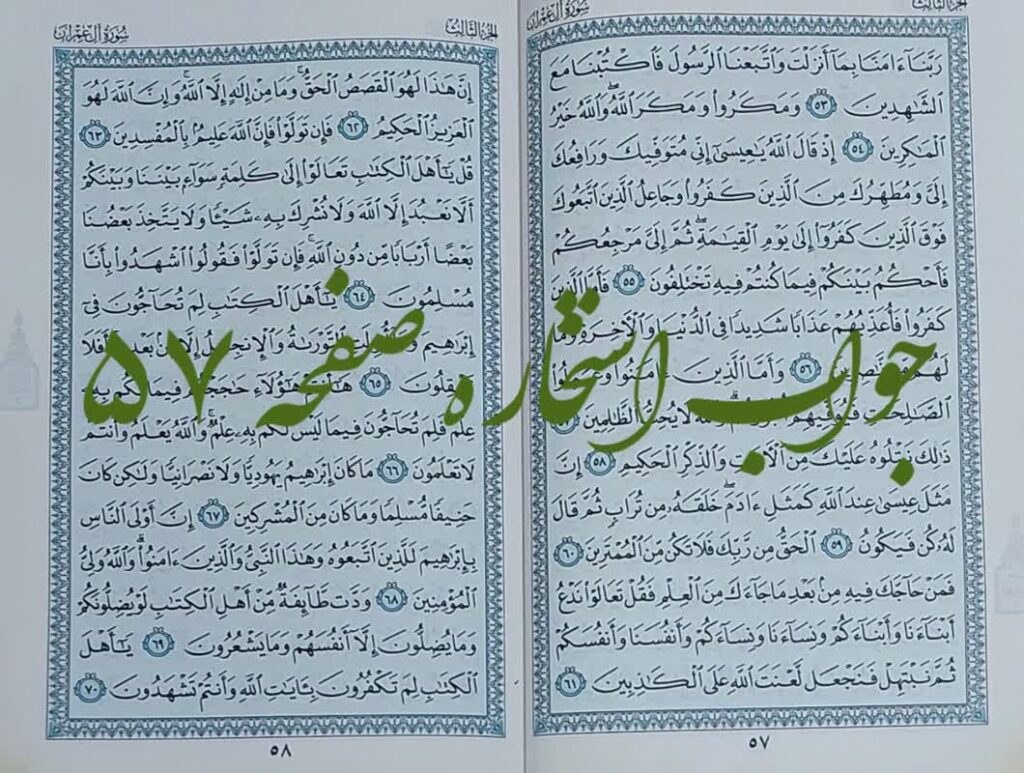 الجزء الثالث
سورة آل عمران
رَبَّنَآ ءَامَنَّا بِمَآ أَنزَلْتَ وَٱتَّبَعْنَا ٱلرَّسُولَ فَٱكْتُبْنَا مَعَ
ٱلشَّٰهِدِينَ ٥٣ وَمَكَرُوا۟ وَمَكَرَ ٱللَّهُ وَٱللَّهُ خَيْرُ
ٱلْمَٰكِرِينَ ٥٤ إِذْ قَالَ ٱللَّهُ يَٰعِيسَىٰٓ إِنِّى مُتَوَفِّيكَ وَرَافِعُكَ
إِلَىَّ وَمُطَهِّرُكَ مِنَ ٱلَّذِينَ كَفَرُوا۟ وَجَاعِلُ ٱلَّذِينَ ٱتَّبَعُوكَ
فَوْقَ ٱلَّذِينَ كَفَرُوٓا۟ إِلَىٰ يَوْمِ ٱلْقِيَٰمَةِ ثُمَّ إِلَىَّ مَرْجِعُكُمْ
فَأَحْكُمُ بَيْنَكُمْ فِيمَا كُنتُمْ فِيهِ تَخْتَلِفُونَ ٥٥ فَأَمَّا ٱلَّذِينَ
كَفَرُوا۟ فَأُعَذِّبُهُمْ عَذَابًا شَدِيدًا فِى ٱلدُّنْيَا وَٱلْءَاخِرَةِ وَمَا
لَهُم مِّن نَّٰصِرِينَ ٥٦ وَأَمَّا ٱلَّذِينَ ءَامَنُوا۟ وَعَمِلُوا۟
ٱلصَّٰلِحَٰتِ فَيُوَفِّيهِمْ أُجُورَهُمْ وَٱللَّهُ لَا يُحِبُّ ٱلظَّٰلِمِينَ ٥٧
ذَٰلِكَ نَتْلُوهُ عَلَيْكَ مِنَ ٱلْءَايَٰتِ وَٱلذِّكْرِ ٱلْحَكِيمِ ٥٨ إِنَّ
مَثَلَ عِيسَىٰ عِندَ ٱللَّهِ كَمَثَلِ ءَادَمَ خَلَقَهُۥ مِن تُرَابٍ ثُمَّ قَالَ
لَهُۥ كُن فَيَكُونُ ٥٩ ٱلْحَقُّ مِن رَّبِّكَ فَلَا تَكُن مِّنَ ٱلْمُمْتَرِينَ ٦٠
فَمَنْ حَآجَّكَ فِيهِ مِنۢ بَعْدِ مَا جَآءَكَ مِنَ ٱلْعِلْمِ فَقُلْ تَعَالَوْا۟ نَدْعُ
أَبْنَآءَنَا وَأَبْنَآءَكُمْ وَنِسَآءَنَا وَنِسَآءَكُمْ وَأَنفُسَنَا وَأَنفُسَكُمْ
ثُمَّ نَبْتَهِلْ فَنَجْعَل لَّعْنَتَ ٱللَّهِ عَلَى ٱلْكَٰذِبِينَ ٦١
٥٧
الجزء الثالث
سورة آل عمران
إِنَّ هَٰذَا لَهُوَ ٱلْقَصَصُ ٱلْحَقُّ وَمَا مِنْ إِلَٰهٍ إِلَّا ٱللَّهُ وَإِنَّ ٱللَّهَ لَهُوَ
ٱلْعَزِيزُ ٱلْحَكِيمُ ٦٢ فَإِن تَوَلَّوْا۟ فَإِنَّ ٱللَّهَ عَلِيمٌۢ بِٱلْمُفْسِدِينَ ٦٣
قُلْ يَٰٓأَهْلَ ٱلْكِتَٰبِ تَعَالَوْا۟ إِلَىٰ كَلِمَةٍ سَوَآءٍۭ بَيْنَنَا وَبَيْنَكُمْ
أَلَّا نَعْبُدَ إِلَّا ٱللَّهَ وَلَا نُشْرِكَ بِهِۦ شَيْـًٔا وَلَا يَتَّخِذَ بَعْضُنَا
بَعْضًا أَرْبَابًا مِّن دُونِ ٱللَّهِ فَإِن تَوَلَّوْا۟ فَقُولُوا۟ ٱشْهَدُوا۟ بِأَنَّا
مُسْلِمُونَ ٦٤ يَٰٓأَهْلَ ٱلْكِتَٰبِ لِمَ تُحَآجُّونَ فِىٓ
إِبْرَٰهِيمَ وَمَآ أُنزِلَتِ ٱلتَّوْرَىٰةُ وَٱلْإِنجِيلُ إِلَّا مِنۢ بَعْدِهِۦٓ أَفَلَا
تَعْقِلُونَ ٦٥ هَٰٓأَنتُمْ هَٰٓؤُلَآءِ حَٰجَجْتُمْ فِيمَا لَكُم بِهِۦ
عِلْمٌ فَلِمَ تُحَآجُّونَ فِيمَا لَيْسَ لَكُم بِهِۦ عِلْمٌ وَٱللَّهُ يَعْلَمُ وَأَنتُمْ
لَا تَعْلَمُونَ ٦٦ مَا كَانَ إِبْرَٰهِيمُ يَهُودِيًّا وَلَا نَصْرَانِيًّا وَلَٰكِن كَانَ
حَنِيفًا مُّسْلِمًا وَمَا كَانَ مِنَ ٱلْمُشْرِكِينَ ٦٧ إِنَّ أَوْلَى ٱلنَّاسِ
بِإِبْرَٰهِيمَ لَلَّذِينَ ٱتَّبَعُوهُ وَهَٰذَا ٱلنَّبِىُّ وَٱلَّذِينَ ءَامَنُوا۟ وَٱللَّهُ وَلِىُّ
ٱلْمُؤْمِنِينَ ٦٨ وَدَّت طَّآئِفَةٌ مِّنْ أَهْلِ ٱلْكِتَٰبِ لَوْ يُضِلُّونَكُمْ
وَمَا يُضِلُّونَ إِلَّآ أَنفُسَهُمْ وَمَا يَشْعُرُونَ ٦٩ يَٰٓأَهْلَ
ٱلْكِتَٰبِ لِمَ تَكْفُرُونَ بِـَٔايَٰتِ ٱللَّهِ وَأَنتُمْ تَشْهَدُونَ ٧٠
٥٨
جواب استخاره صفحه ۵۷